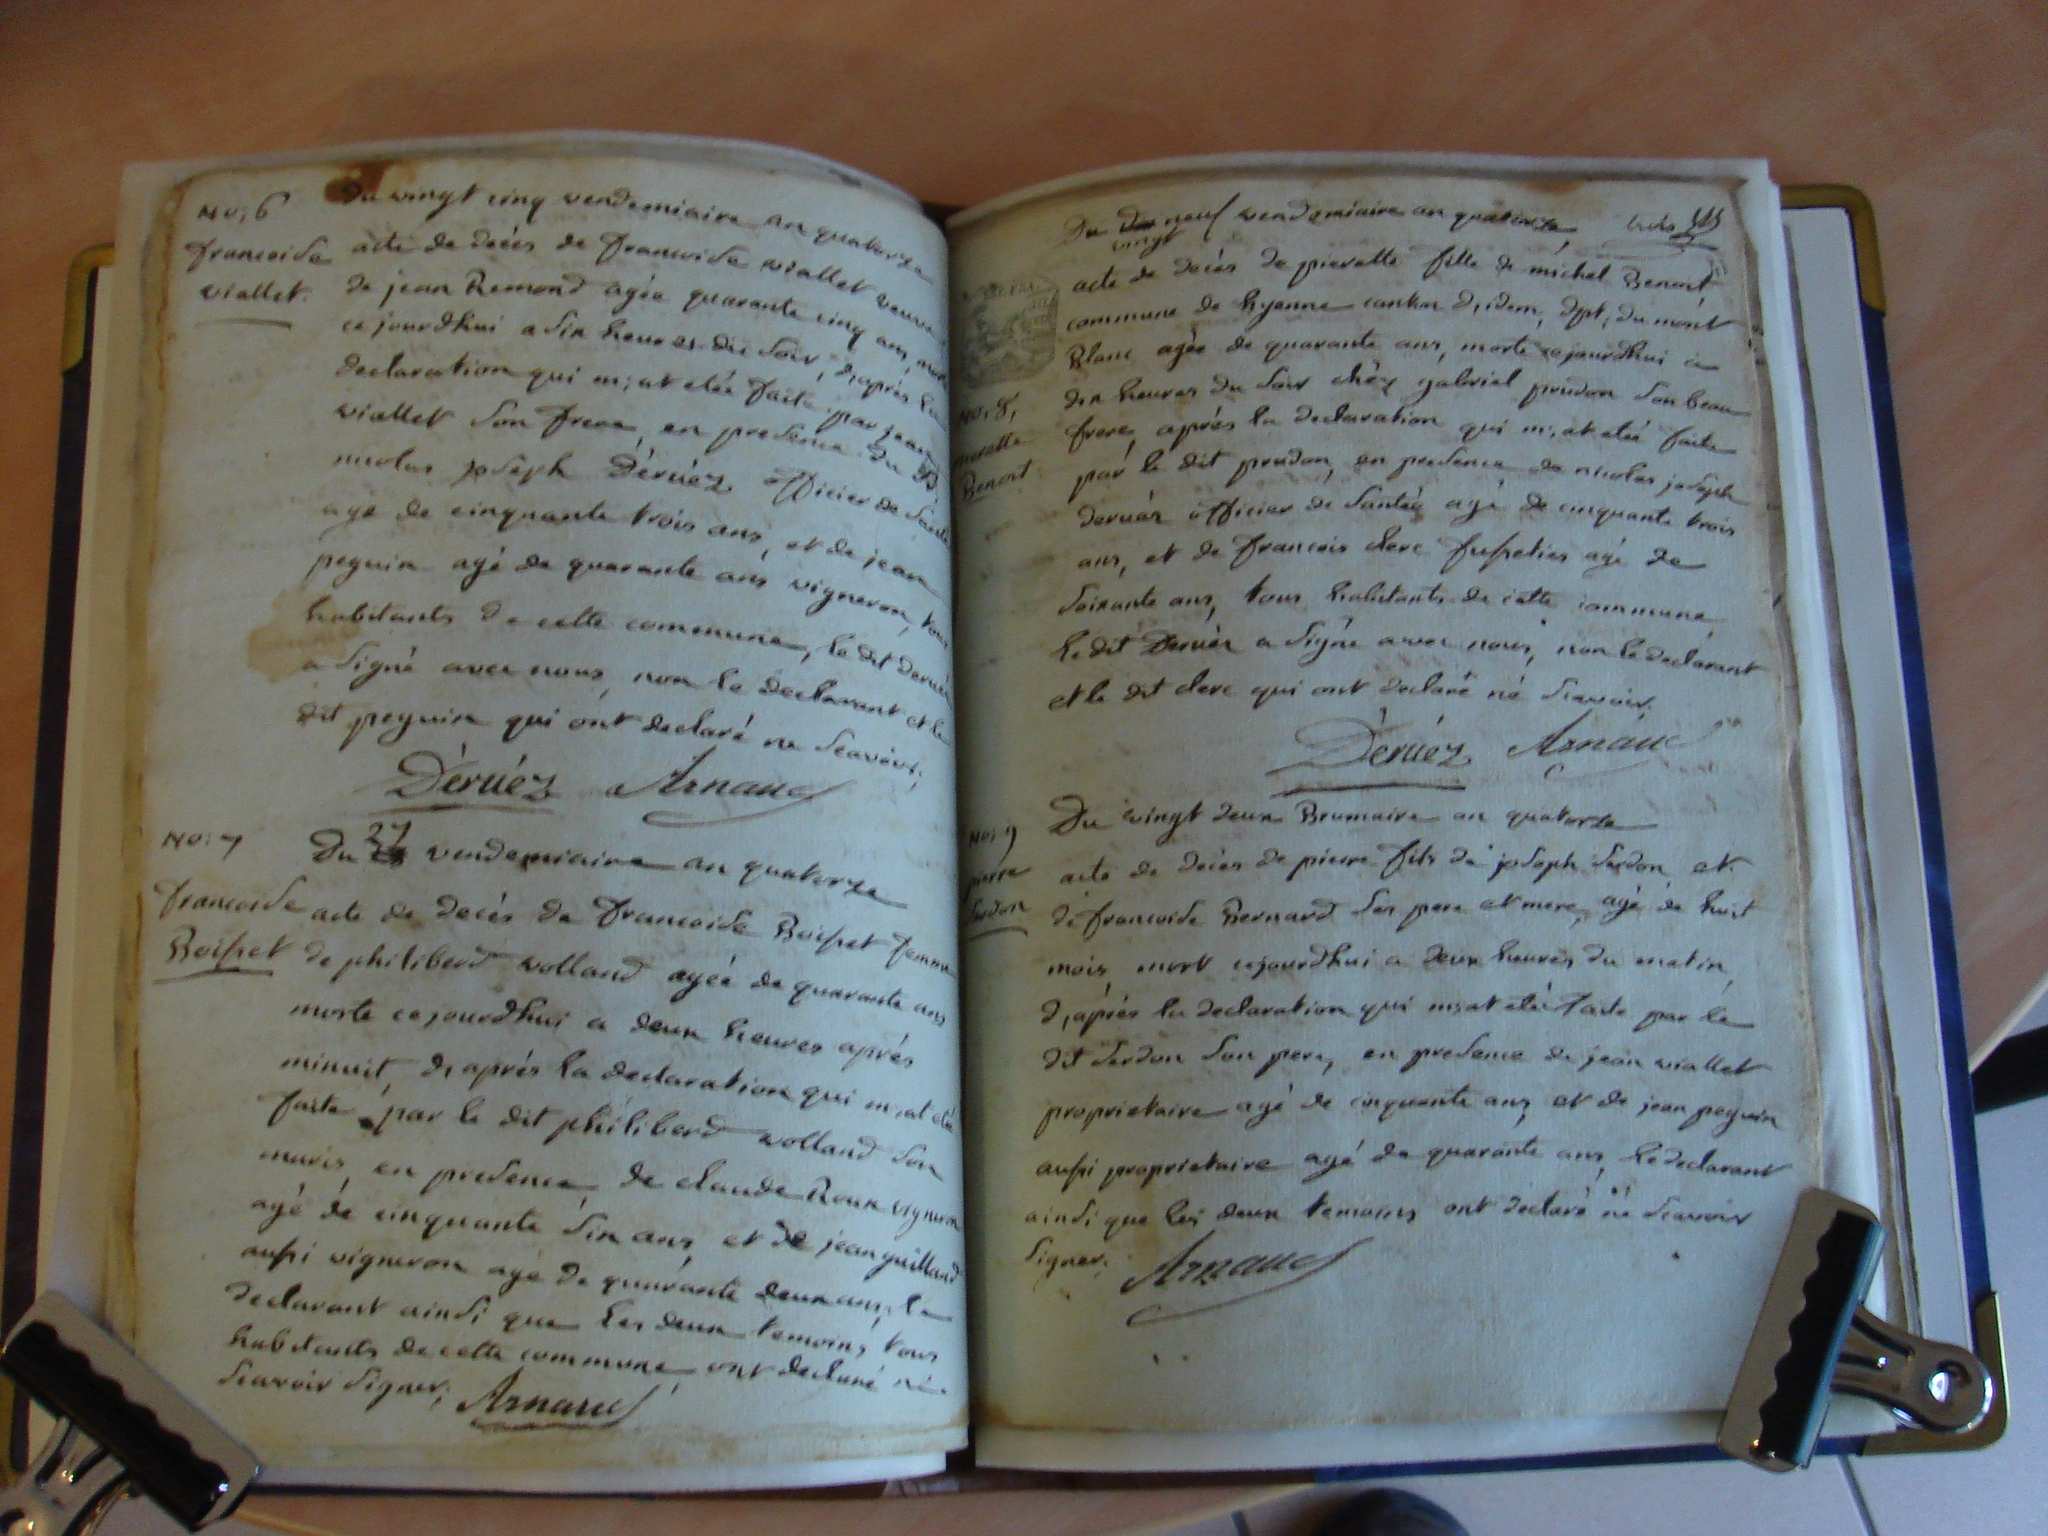 No: 6
francoise
viallet.
Du vingt cinq vendemiaire an quatorze
acte de decés de francoise viallet veuve
de jean Remond agée quarante cinq ans, morte
ce jourdhui a six heures du soir, d,aprés la
declaration qui m,at etée faite par jean
viallet son frere, en presence du
nicolas joseph Dèruèz officier de santé
agé de cinquante trois ans, et de jean
peguin agé de quarante ans vigneron, tous
habitants de cette commune, le dit deruéz
a signé avec nous, non le declarant et le
dit peguin qui ont declaré ne scavoir;
Dèruéz Arnaud
No: 7
francoise
Boisset
Du 27 vendemiaire an quatorze
acte de decés de francoise Boisset femme
de philiberd volland agéé de quarante ans
morte cejourdhui a deux heures aprés
minuit, d,aprés la declaration qui m,at eté
faite par le dit philiberd volland son
maris, en presence, de claude Roux vigneron
agé de cinquante six ans, et de jean guilland
aussi vigneron agé de quarante deux ans, le
declarant ainsi que les deux temoins, tous
habitants de cette commune ont declaré né
scavoir signer; Arnaud
Du neuf vendemiaire an quatorze
vingt
No: 8,
pierette
Benoit
acte de decés de pierette fille de michel Benoit
commune de hyenne canton d,idem, dpt, du mont
Blanc agée de quarante ans, morte cejourdhui a
dix heures du soir chéz gabriel prudon son beau
frere, aprés la declaration qui m,at etéé faite
par le dit prudon, en presence de nicolas joseph
deruéz officier de santéé agé de cinquante trois
ans, et de francois clerc agé de
soixante ans, tous habitants de cette commune,
le dit Deruéz a signé avec nous, non le declarant
et le dit clerc qui ont declaré né scavoir.
Dèruéz Arnaud
No: 9
pierre
serdon
Du vingt deux Brumaire an quatorze
acte de decés de pierre fils de joseph serdon et
de francoise Bernard ses pere et mere, agé de huit
mois, mort cejourdhui a deux heures du matin,
d,aprés la declaration qui m,at etéé faite par le
dit serdon son pere, en presence de jean viallet
proprietaire agé de cinquante ans, et de jean peguin
aussi proprietaire agé de quarante ans, le declarant
ainsi que les deux temoins ont declaré né scavoir
signer; Arnaud